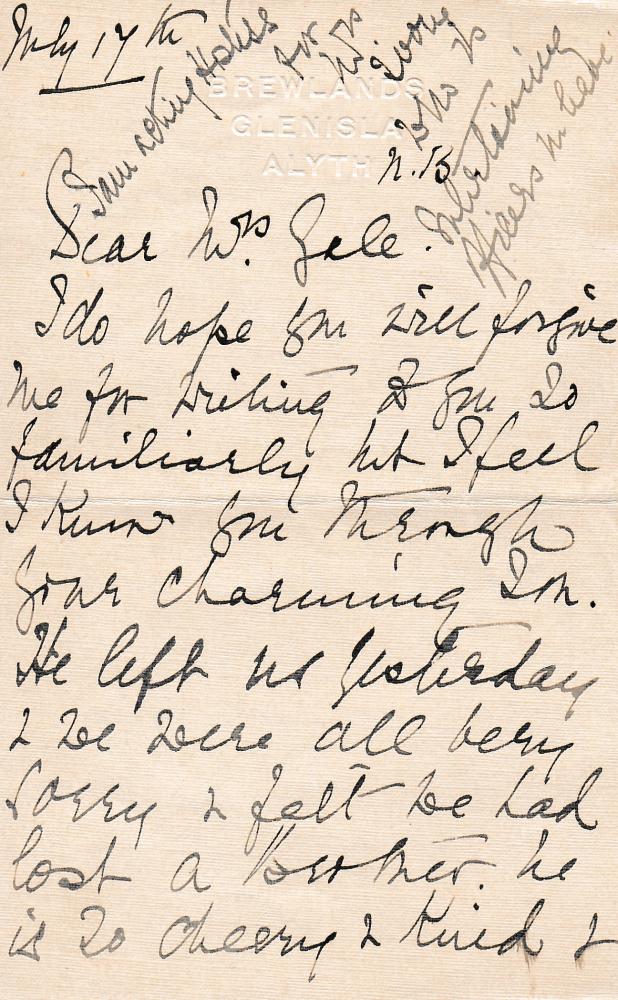 July 17th
BREWLANDS
GLENISLA
ALYTH
N.B
I am acting Hostess
for Mrs
who is
entertaining
Officers in
Dear Mrs. Gale.
I do hope you will forgive
me for writing to you so
familiarly but I feel
I know you through
your charming Son.
He left us yesterday
& we were all very
sorry & felt we had
lost a brother. he
is so cheery & kind &